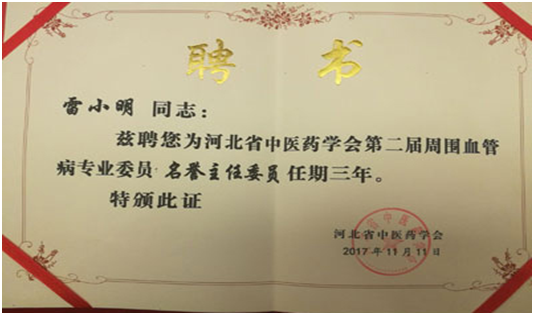 聘 书
雷小明 同志：
兹聘您为河北省中医药学会第二届周围血管
病专业委员 名誉主任委员 任期三年。
特颁此证
河北省中医药学会
2017年11月11日